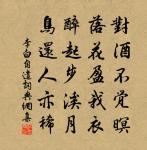 對酒不覺暝
落花盈我衣
醉起步溪月
鳥還人亦稀
李白自遣詞典網集